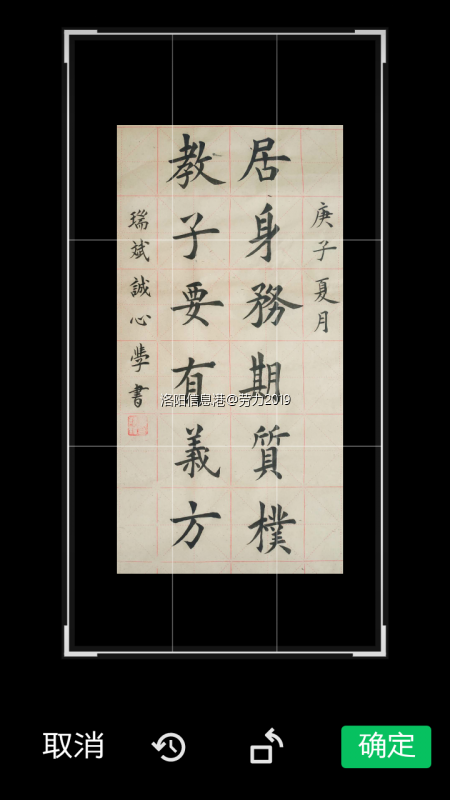 庚子夏月
居身務期質樸
教子要有義方
瑞斌誠心學書
洛阳信息港@劳力2019
取消
确定